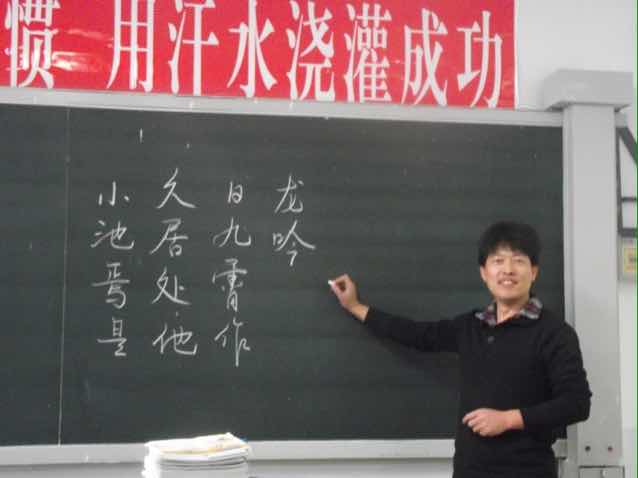 惯 用汗水浇灌成功
小池焉是
久居处,他
日九霄作
龙吟